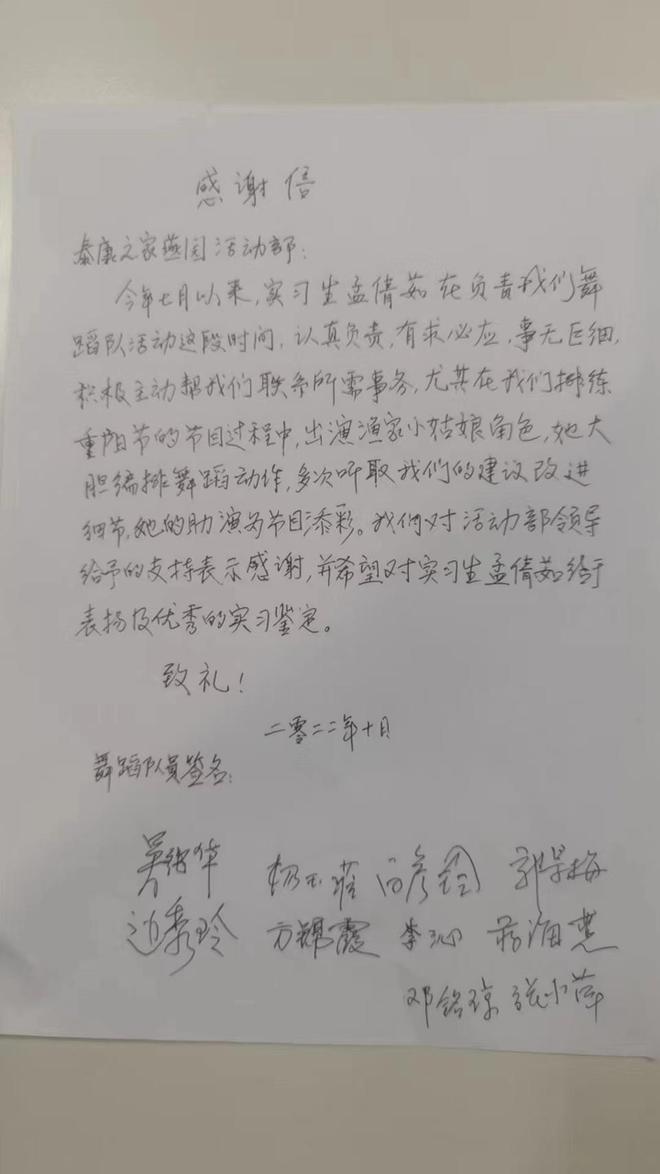 感谢信
泰康之家燕园活动部：
今年七月以来，实习生孟倩茹在负责我们舞
蹈队活动这段时间，认真负责，有求必应，事无巨细，
积极主动帮我们联系所需事务，尤其在我们排练
重阳节的节目过程中，出演渔家小姑娘角色，她大
胆编排舞蹈动作，多次听取我们的建议改进
细节，她的助演为节目添彩。我们对活动部领导
给予的支持表示感谢，并希望对实习生孟倩茹给于
表扬及优秀的实习鉴定。
致礼！
二零二二年十月
舞蹈队员签名：
郭景梅
边秀玲 方锦霞 李沁 蒋海慧
邓铭琼 张小萍